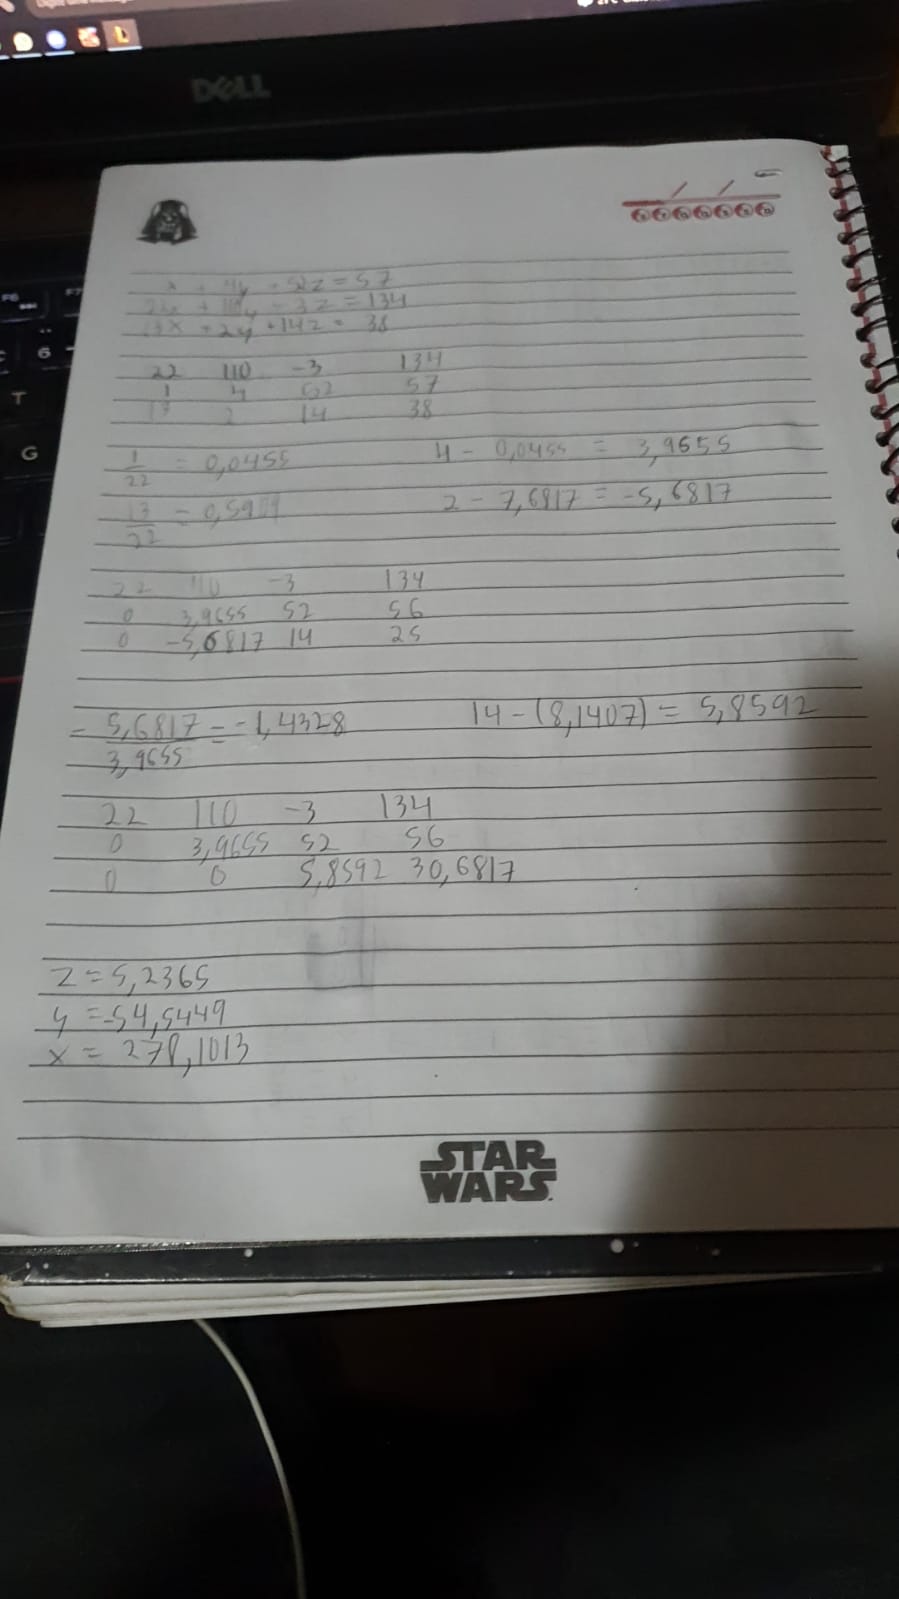 DELL
x + 4y + 52z = 57
22x + 110y - 3z = 134
13x + 2y + 14z = 38
22 110 -3 134
1 4 52 57
13 2 14 38
1/22 = 0,0455 4 - 0,0455 = 3,9655
13/22 = 0,5909 2 - 7,6817 = -5,6817
22 110 -3 134
0 3,9655 52 56
0 -5,6817 14 25
-5,6817/3,9655 = -1,4328 14-(8,1407) = 5,8592
22 110 -3 134
0 3,9655 52 56
0 0 5,8592 30,6817
z = 5,2365
y = -54,5449
x = 278,1013
STAR
WARS